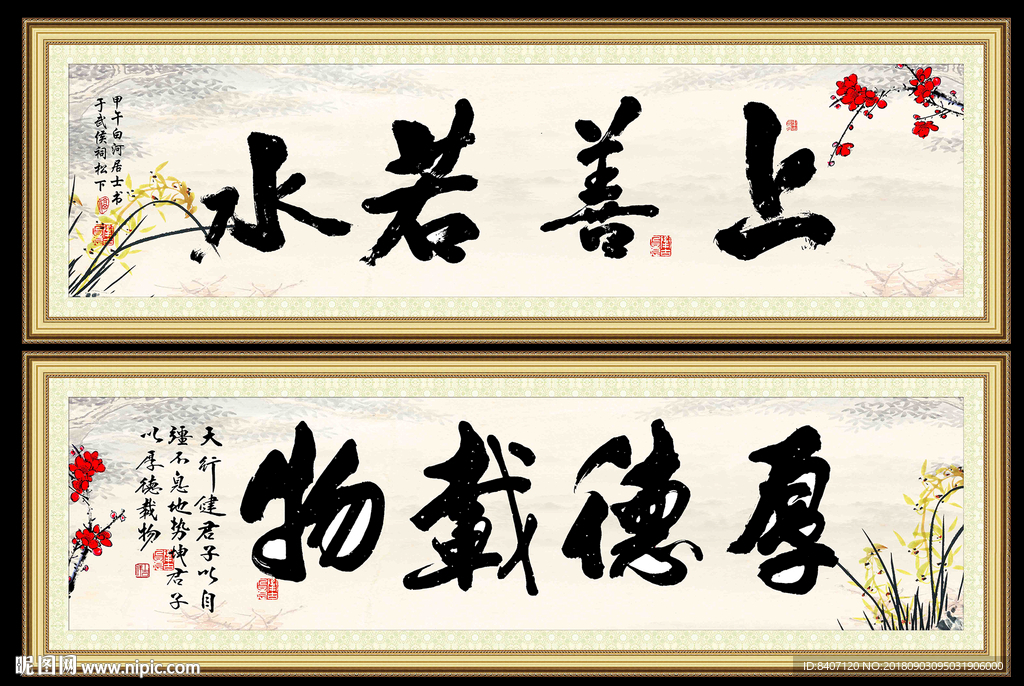 上善若水
甲午白河居士书
于武侯祠松下
厚德载物
天行健君子以自
疆不息地势坤君子
以厚德载物
昵图网 www.nipic.com
ID:8407120 NO:20180903095031906000